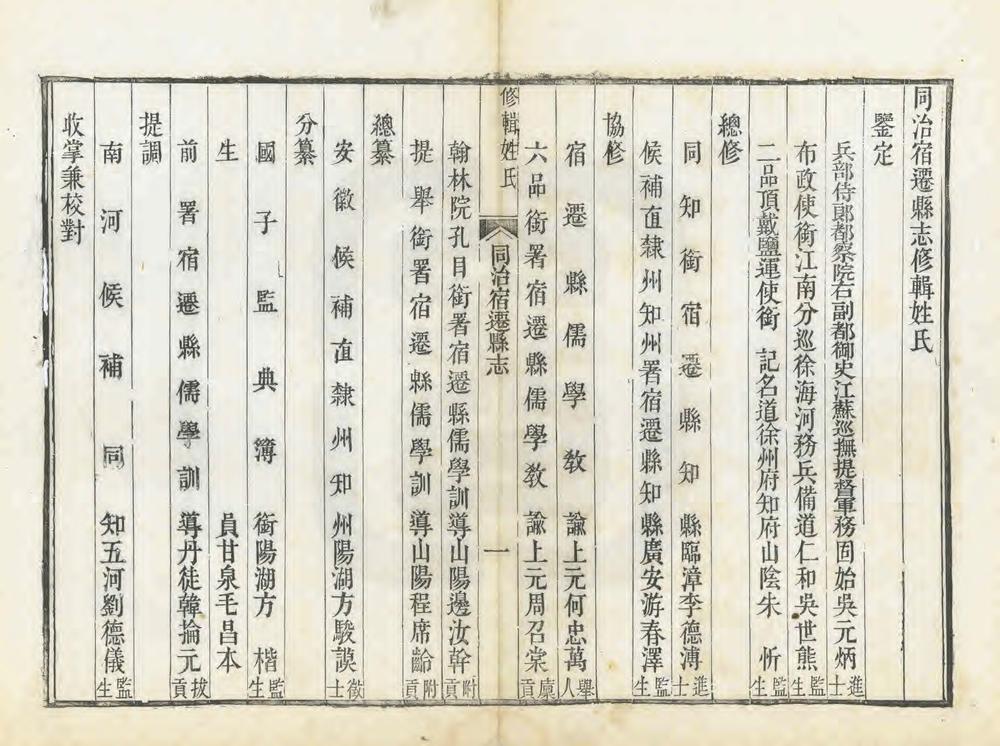 同治宿遷縣志修輯姓氏
鑒定
兵部侍郎都察院右副都御史江蘇巡撫提督軍務固始吳元炳進士
布政使銜江南分巡徐海河務兵備道仁和吳世熊監生
二品頂戴鹽運使銜 記名道徐州府知府山陰朱 忻監生
總修
同知銜宿遷縣知縣臨漳李德溥進士
候補直隸州知州署宿遷縣知縣廣安游春澤監生
協修
宿遷縣儒學教諭上元何忠萬舉人
六品銜署宿遷縣儒學教諭上元周召棠廩貢
修輯姓氏
同治宿遷縣志
一
翰林院孔目銜署宿遷縣儒學訓導山陽邊汝幹附貢
提舉銜署宿遷縣儒學訓導山陽程席齡附貢
總纂
安徽候補直隸州知州陽湖方駿謨徵士
分纂
國子監典簿銜陽湖方 楷監生
生員甘泉毛昌本
前署宿遷縣儒學訓導丹徒韓掄元拔貢
提調
南河候補同知五河劉德儀監生
收掌兼校對